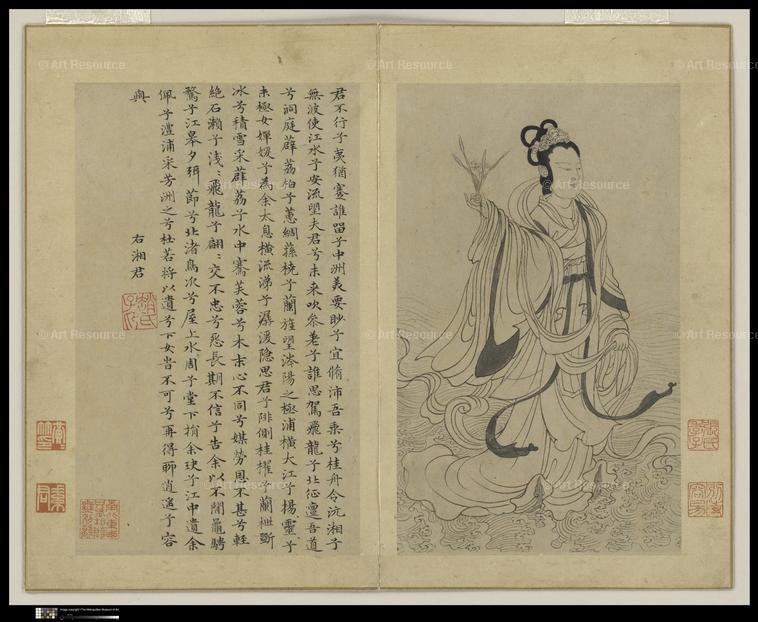 君不行兮夷猶蹇誰留兮中洲美要眇兮宜脩沛吾乘兮桂舟令沅湘兮
無波使江水兮安流望夫君兮未來吹參差兮誰思駕飛龍兮北征邅吾道
兮洞庭薜荔柏兮蕙綢蓀橈兮蘭旌望涔陽之極浦橫大江兮揚靈兮
未極女嬋媛兮為余太息橫流涕兮潺湲隱思君兮陫側桂櫂兮蘭枻斲
冰兮積雪采薜荔兮水中搴芙蓉兮木末心不同兮媒勞恩不甚兮輕
絕石瀨兮淺〻飛龍兮翩〻交不忠兮怨長期不信兮告余以不閒鼂騁
騖兮江皋夕弭節兮北渚鳥次兮屋上水周兮堂下捐余玦兮江中遺余
佩兮澧浦采芳洲之兮杜若將以遺兮下女旹不可兮再得聊逍遙兮容
與
右湘君
© Art Resource
© Art Resource
© Art Resource
© Art Resource
© Art Resource
© Art Resource
© Art Resource
© Art Resource
© Art Resource
© Art Resource
© Art Resource
© Art Resource